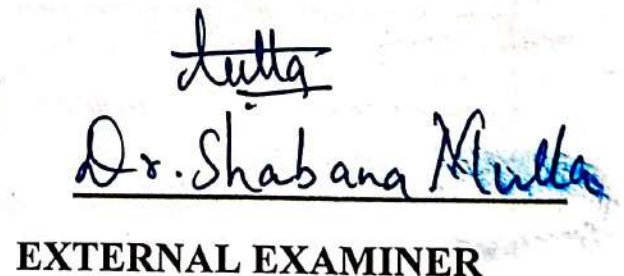 Dr. Shabana Mulla
EXTERNAL EXAMINER